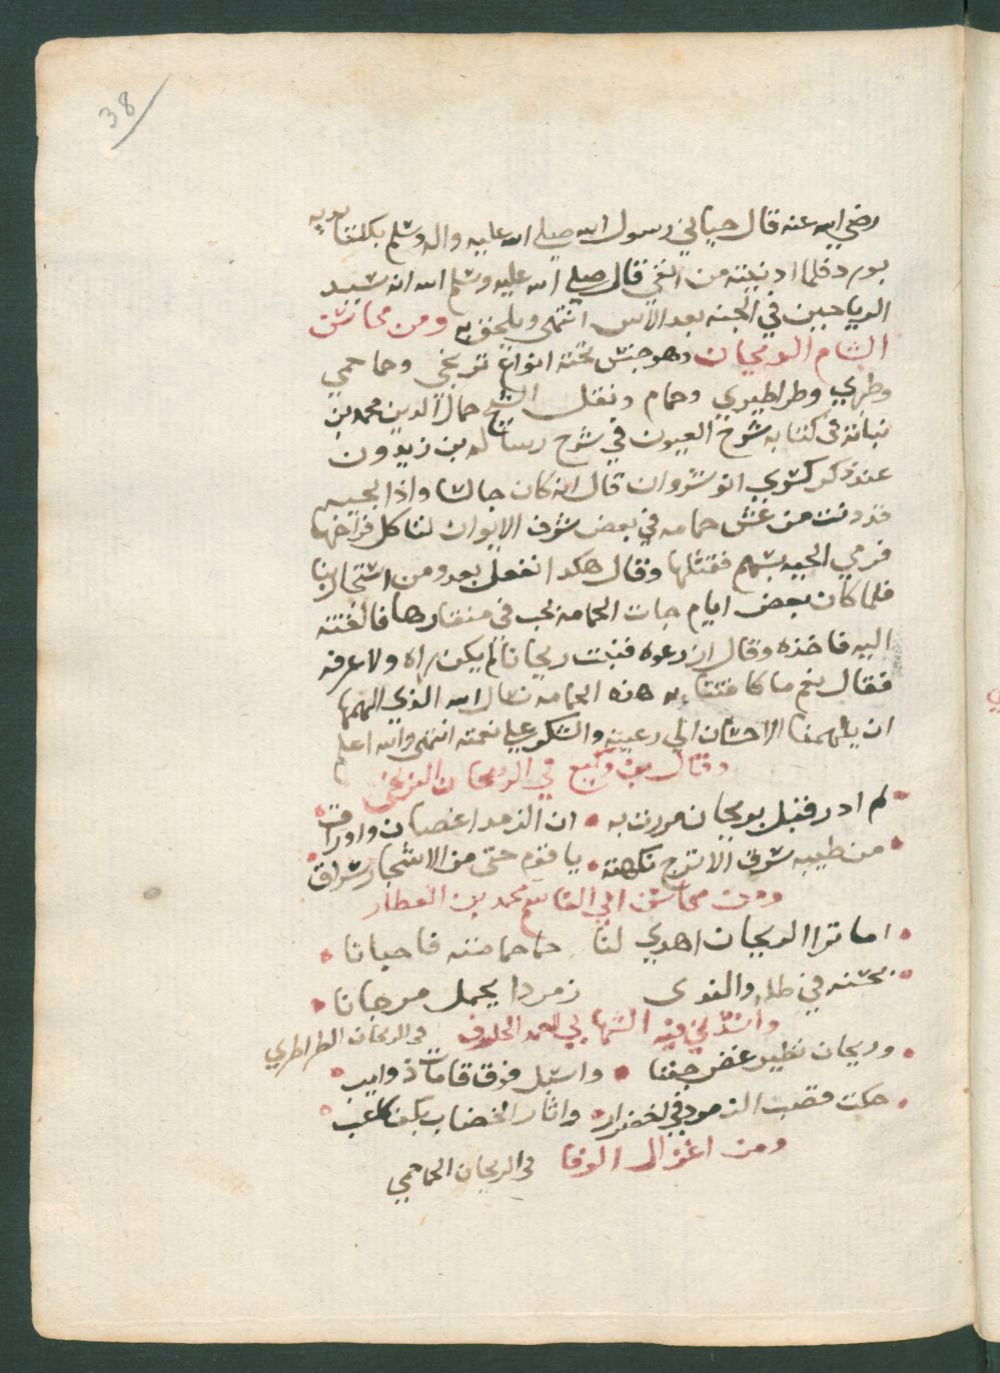 38
رضي الله عنه قال حياني رسول الله صلى الله عليه واله وسلم بكلتا يديه
بورد فلما ادنيته من انفي قال صلى الله عليه وسلم اما انه سيد
الرياحين في الجنه بعد الاس انتهى ويلحق به ومن محاسن
الشام الريحان وهو جنس تحته انواع ترنجي وحماحمي
وطراطيري وحمام ونقل الشيخ جمال الدين محمد بن
نباتة في كتابه شرح العيون في شرح رسالة بن زيدون
عند ذكر كسرى انوشروان قال انه كان جالسا واذا بحيه
قد دنت من عش حمامه في بعض شرف الايوان لتاكل فراخها
فرمى الحيه بسهم فقتلها وقال هكدا نفعل بعدو من استجار بنا
فلما كان بعض ايام جات الحمامه بحب في منقارها فالقته
اليه فاخذه وقال ازرعوه فنبت ريحانا لم يكن راه ولا عرفه
فقال نعم ما كافتنا به هذه الحمامه نسال الله الذي الهمها
ان يلهمنا الاحسان الى رعيته والشكر على نعمته انتهى والله اعلم
وقال بن وكيع في الريحان الترنجي
لم ادر قبل بريحان مررت به ان الزمرد اغصان واوراق
من طيبه سرق الاترج نكهته يا قوم حتى من الاشجار سراق
ومن محاسن ابي القاسم محمد بن العطار
اما ترا الريحان اهدى لنا حماحما منه فاحيانا
تحسبه في طله والندى زمردا يحمل مرجانا
وانشدني فيه الشهابي احمد الخلوف في الريحان الطراطري
وريحان نضير غض جفنا واسبل فوق قامات ذوايب
حكت قصب الزمرد في اخضرار واثار الخضاب بكف كاعب
ومن اغزال الوفا في الريحان الحماحمي